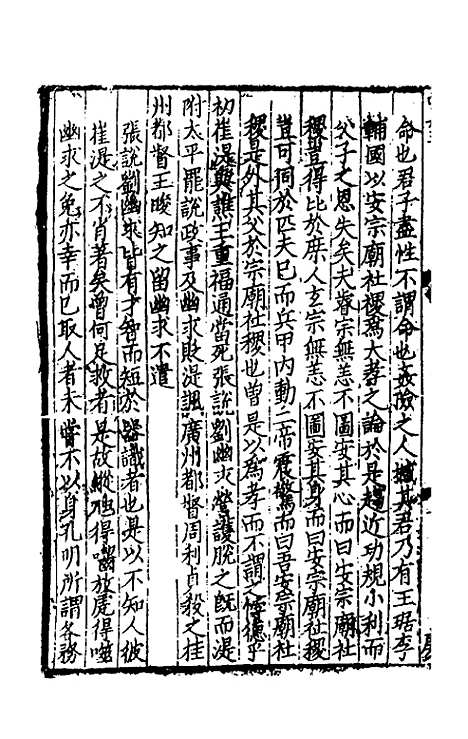 命也君子盡性不謂命也姦險之人撼其君乃有王琚李
輔國以安宗廟社稷爲大孝之論於是趨近功規小利而
父子之恩失矣夫睿宗無恙不圖安其心而曰安宗廟社
稷豈得比於庶人玄宗無恙不圖安其身而曰安宗廟社稷
豈可同於匹夫已而兵甲内動二帝震驚而曰吾安宗廟社
稷是外其父於宗廟社稷也曾是以爲孝而不謂之悖德乎
初崔湜與譙王重福通當死張說劉幽求營護脫之旣而湜
附太平罷說政事及幽求敗湜諷廣州都督周利貞殺之桂
州都督王晙知之留幽求不遣
張說劉幽求皆有才智而短於器識者也是以不知人彼
崔湜之不肖著矣曾何足救者是故縱虺得噬放虎得噬
幽求之免亦幸而已取人者未嘗不以身孔明所謂各務